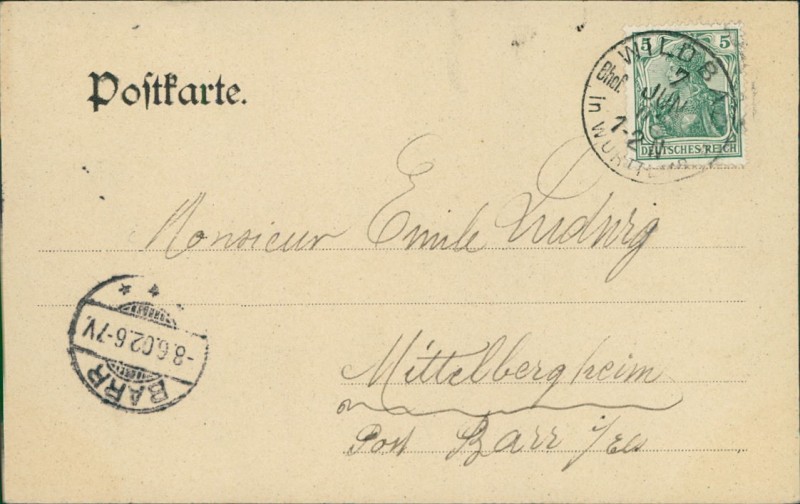 Postkarte.
5 5
DEUTSCHES REICH
WILDBAD
Bhof.
7
JUN
1-2 N
in WÜRTTEMB
Monsieur Emile Ludwig
Mittelbergheim
Post Barr i/Els
BARR
-8.6.02.6-7V.